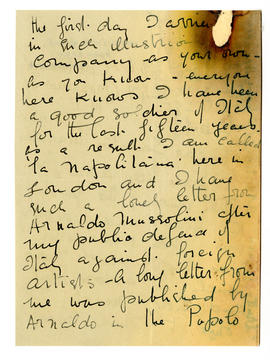 the first day I arrive
in such illustrious
Company - as your own -
as you know - everyone
here knows I have been
a good soldier of Italy
for the last fifteen years -
as a result I am called
"la Napolitaina" here in
London and I have
such a lovely letter from
Arnaldo Mussolini after
my public defence of
Italy against foreign
artists - A long letter from
me was published by
Arnaldo in the Popolo